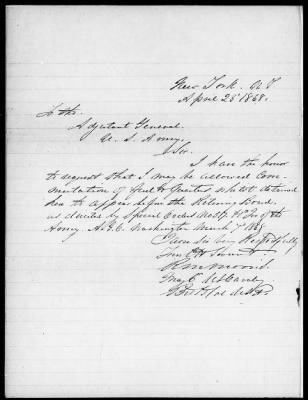 New York. N Y
April 23 1868.
To the
Adjutant General.
U. S. Army.
Sir.
I have the honor
to request that I may be allowed Com-
mutation of Fuel & Quarters whilst detained
here to appear before the Retiring Board.
as directed by Special Orders No 57. Hd Qrs of the
Army. A. G. O. Washington March 7 1868
I am Sir Very Respectfully
Your Obt Servt